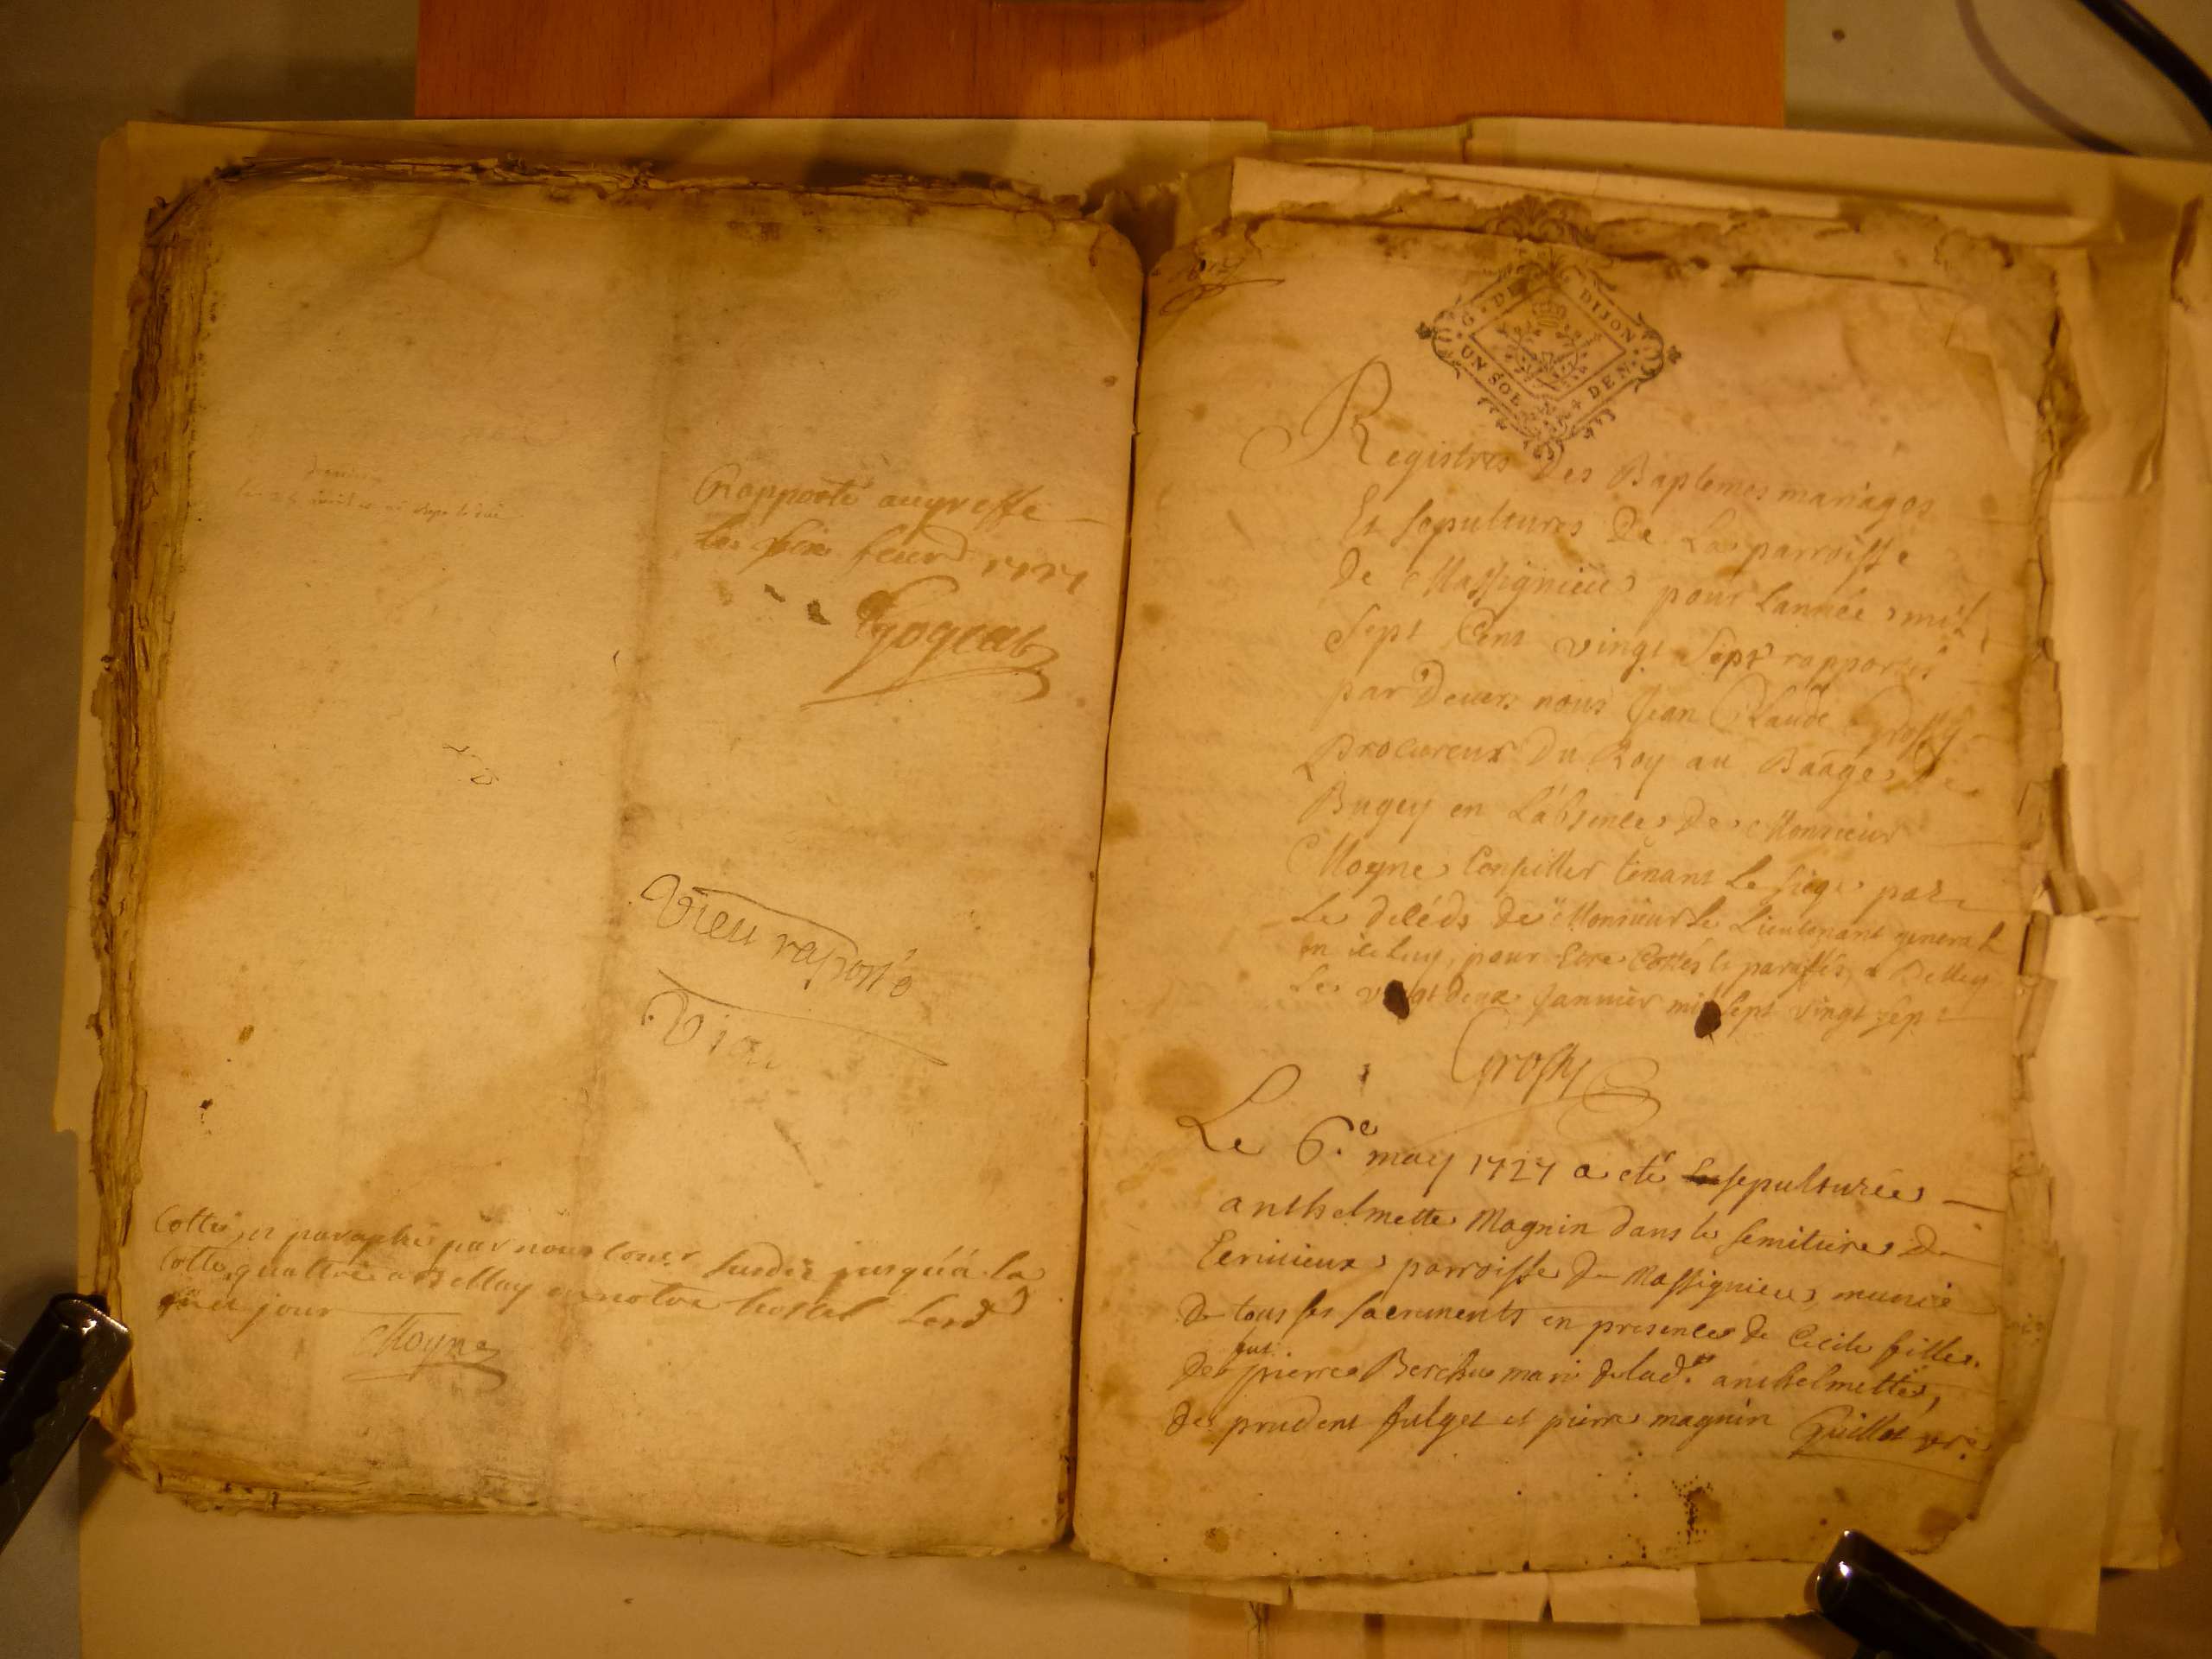 Rapporté augreffe
Les feur 1727
Vieu rapporté
Cotté et paraphé par nous jusqu'a la
Cotte quattre a Bellay en notre hostel Lesd
jour
Moyne
G · DE DIJON
UN SOL 4 DEN
Registres Des Baptemes mariages
Et sepultures De La parroisse
De Massignieu pour Lannée mil
Sept Cent vingt Sept rapportés
par Devers nous Jean Claude Grossy
procureur Du Roy au Baage De
Bugey en Labsence De Monsieur
Moyne Conseiller tenant Le siege par
Le décéds de Monsieur Le Lieutenant general
en iceluy, pour Etre Cottés et parafés, a Belley
Le vingt deux Janvier mil sept vingt sept
Grossy
Le 6.e may 1727 a eté sepulturée
anthelmette Magnin dans le semitiere de
parroisse de Massignieu, munie
de tous ses sacrements en presence de Cecile fille
de fut pierre mari de lad.te anthelmette,
de prudent fulget et pierre magnin Guillot